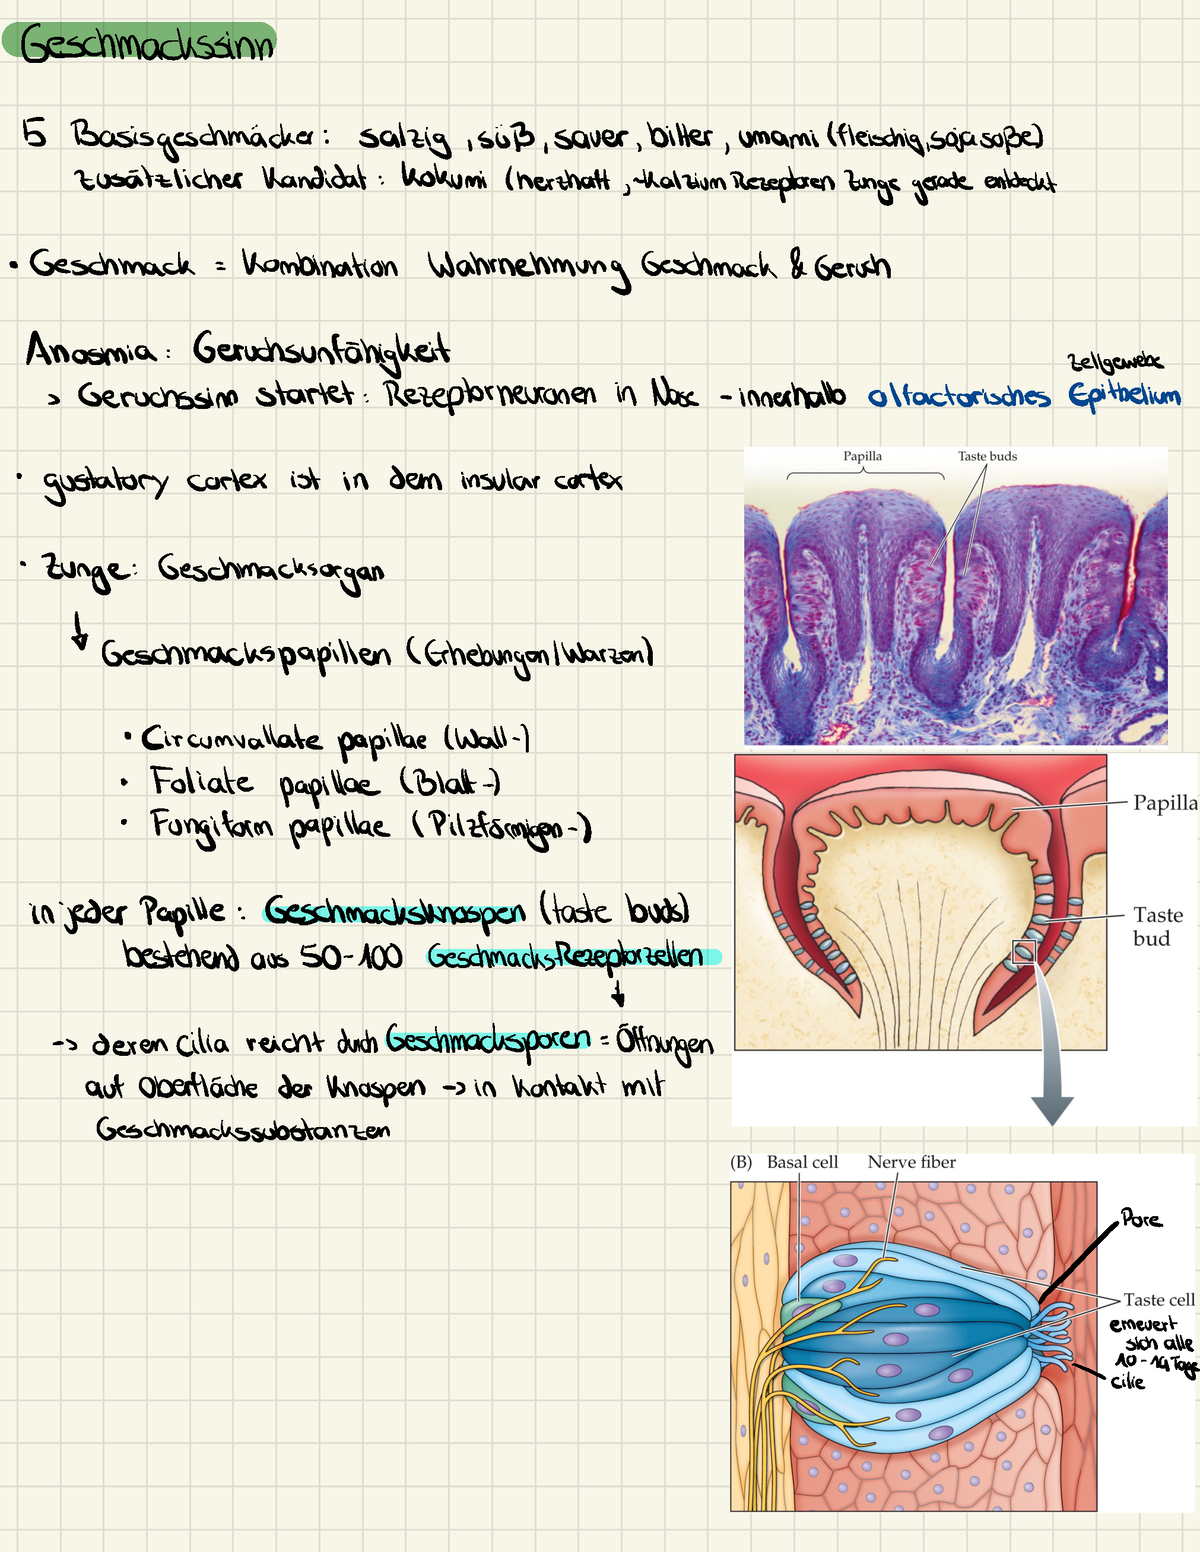 Geschmackssinn
5 Basisgeschmäcker: salzig, süß, sauer, bitter, umami (fleischig, sojasoße)
zusätzlicher Kandidat: Kokumi (herzhaft, →Kalzium Rezeptoren Zunge gerade entdeckt
• Geschmack = Kombination Wahrnehmung Geschmack & Geruch
Anosmia: Geruchsunfähigkeit
Zellgewebe
> Geruchssinn startet: Rezeptorneuronen in Nase - innerhalb olfactorisches Epithelium
• gustatory cortex ist in dem insular cortex
Papilla Taste buds
• Zunge: Geschmacksorgan
↓ Geschmackspapillen (Erhebungen/Warzen)
• Circumvallate papillae (Wall-)
• Foliate papillae (Blatt-)
• Fungiform papillae (Pilzförmigen-)
Papilla
Taste
bud
in jeder Papille: Geschmacksknospen (taste buds)
bestehend aus 50-100 GeschmacksRezeptorzellen
↓
-> deren Cilia reicht durch Geschmacksporen = Öffnungen
auf Oberfläche der Knospen -> in Kontakt mit
Geschmackssubstanzen
(B) Basal cell Nerve fiber
Pore
Taste cell
erneuert
sich alle
10-14 Tage
Cilie